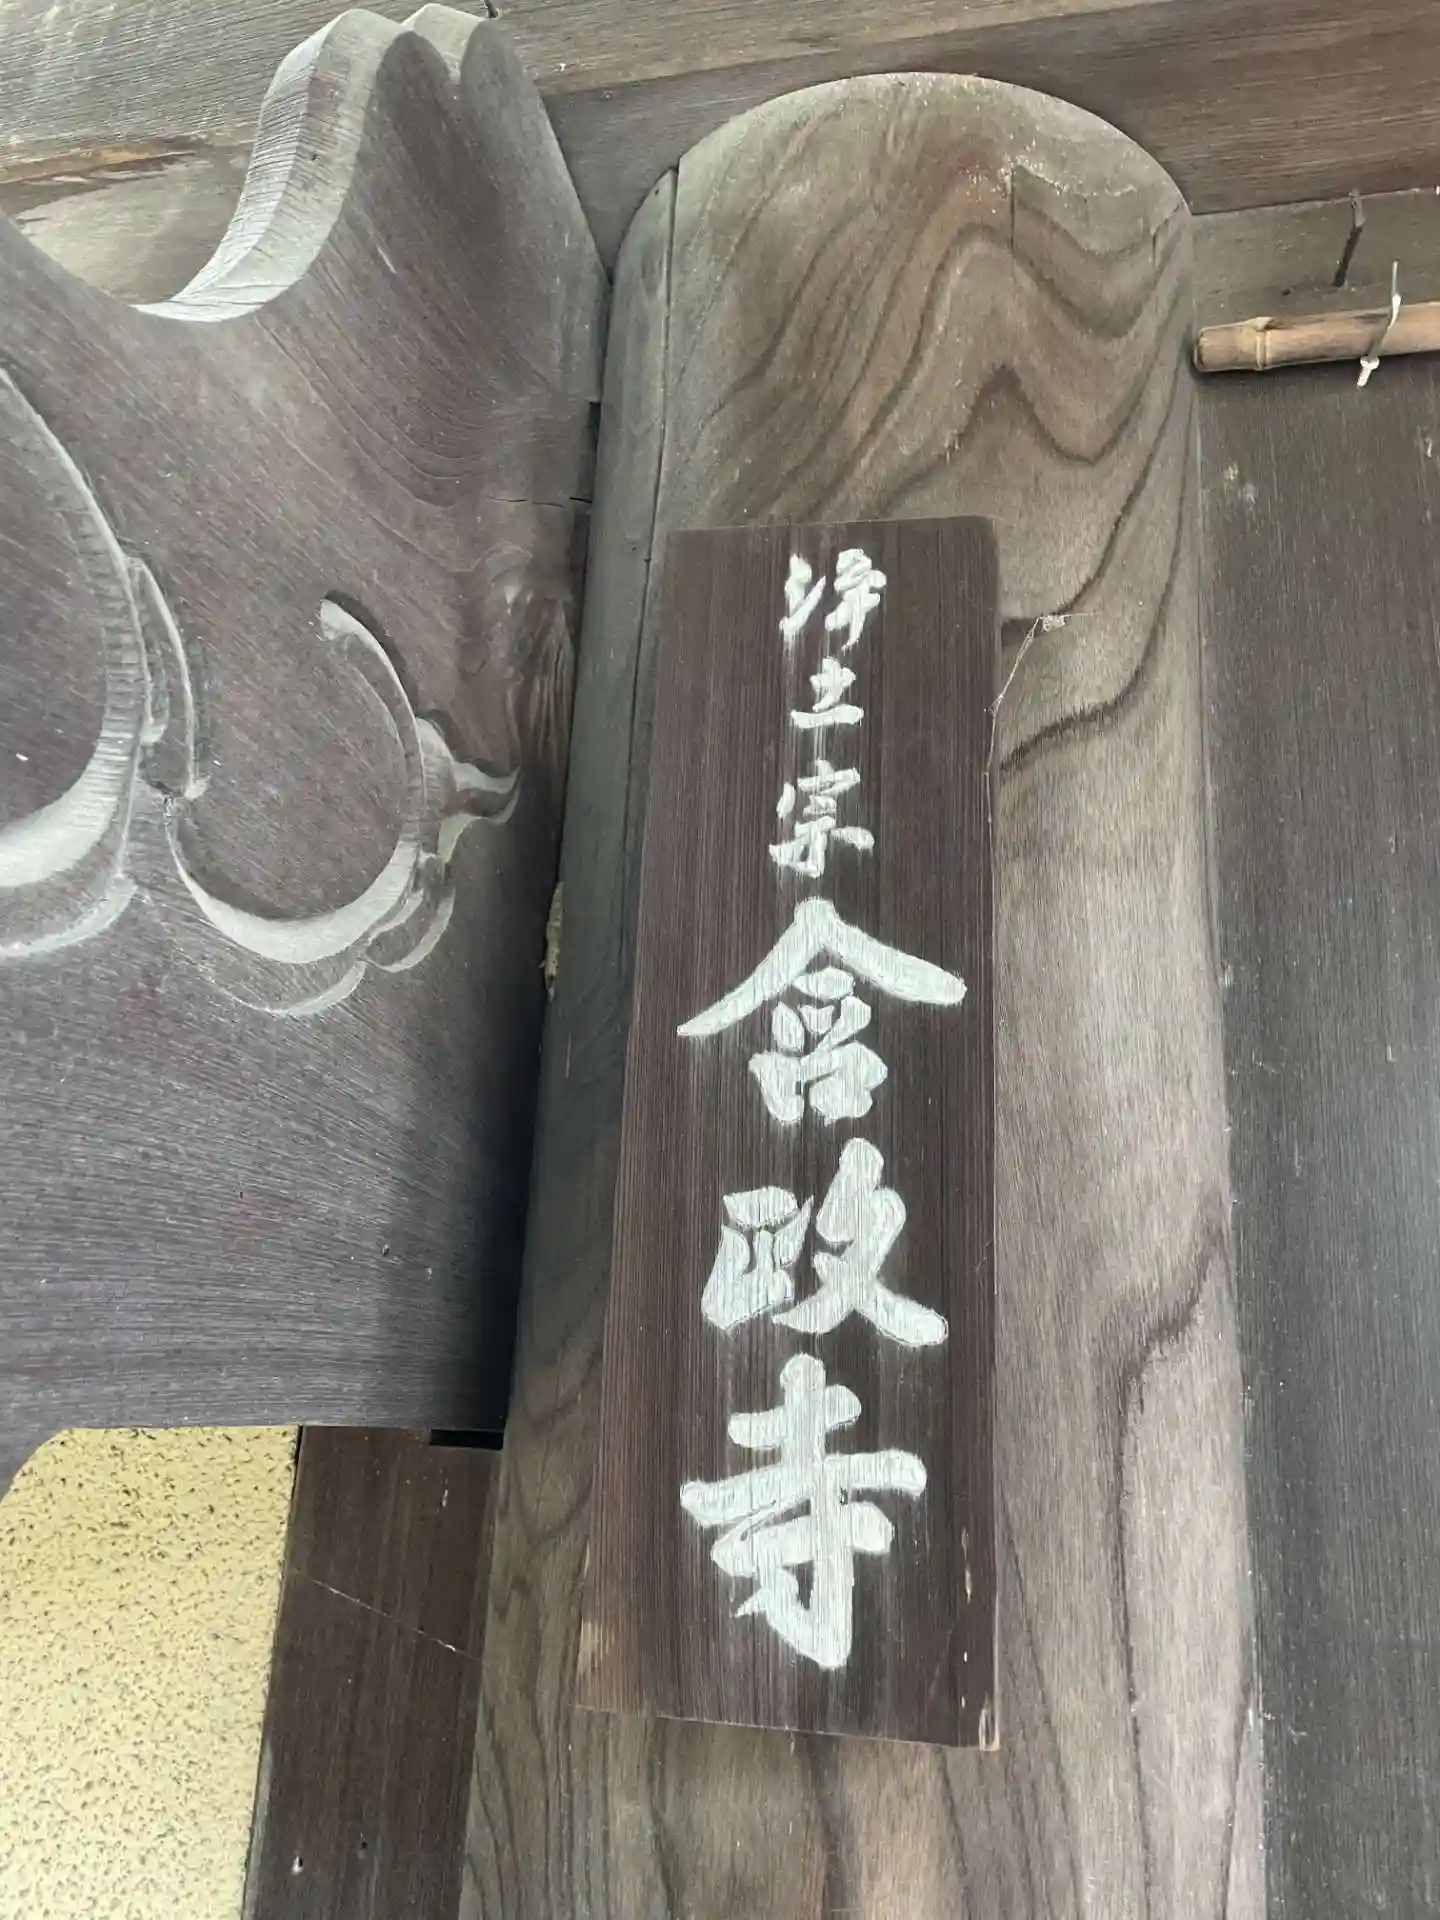 浄土宗含政寺